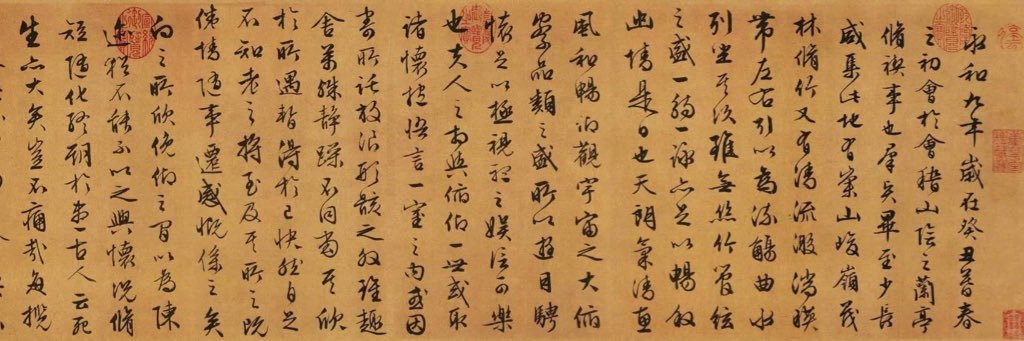 永和九年歲在癸丑暮春
之初會於會稽山陰之蘭亭
脩禊事也羣賢畢至少長
咸集此地有崇山峻嶺茂
林脩竹又有清流激湍暎
帶左右引以為流觴曲水
列坐其次雖無絲竹管絃
之盛一觴一詠亦足以暢敘
幽情是日也天朗氣清惠
風和暢仰觀宇宙之大俯
察品類之盛所以遊目騁
懷足以極視聽之娛信可樂
也夫人之相與俯仰一世或取
諸懷抱悟言一室之內或因
寄所託放浪形骸之外雖趣
舍萬殊靜躁不同當其欣
於所遇暫得於己快然自足
不知老之將至及其所之既
倦情隨事遷感慨係之矣
向之所欣俛仰之間以為陳
迹猶不能不以之興懷況脩
短隨化終期於盡古人云死
生亦大矣豈不痛哉每攬